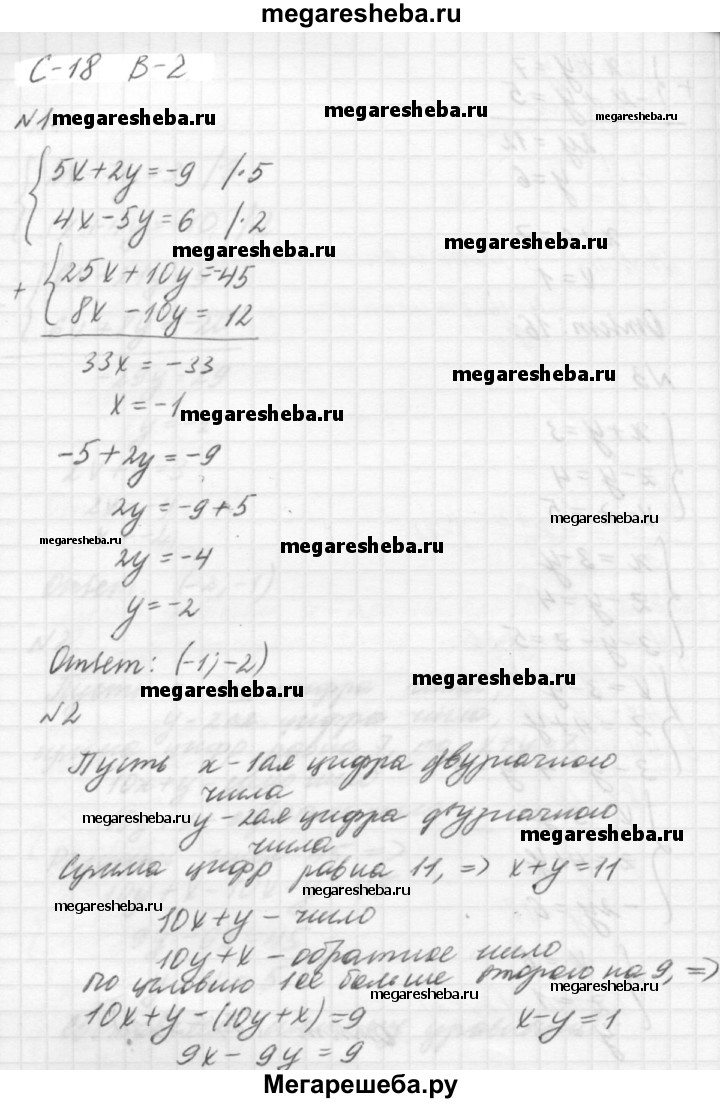 megaresheba.ru
С-18 В-2
№1 megaresheba.ru
megaresheba.ru
megaresheba.ru
5x+2y=-9 /·5
4x-5y=6 /·2
megaresheba.ru
megaresheba.ru
+ 25x+10y=-45
8x -10y= 12
33x = -33
megaresheba.ru
x = -1
megaresheba.ru
-5+2y=-9
2y=-9+5
megaresheba.ru
megaresheba.ru
2y=-4
megaresheba.ru
y=-2
Ответ: (-1;-2)
megaresheba.ru
megaresheba.ru
№2
Пусть x-1ая цифра двузначного
числа
megaresheba.ru
y-2ая цифра двузначного
числа
megaresheba.ru
Сумма цифр равна 11, => x+y=11
megaresheba.ru
megaresheba.ru
10x+y - число
10y+x - обратное число
megaresheba.ru
По условию 1ое больше второго на 9, =>
megaresheba.ru
megaresheba.ru
10x+y-(10y+x)=9 x-y=1
9x-9y=9
Мегарешеба.ру